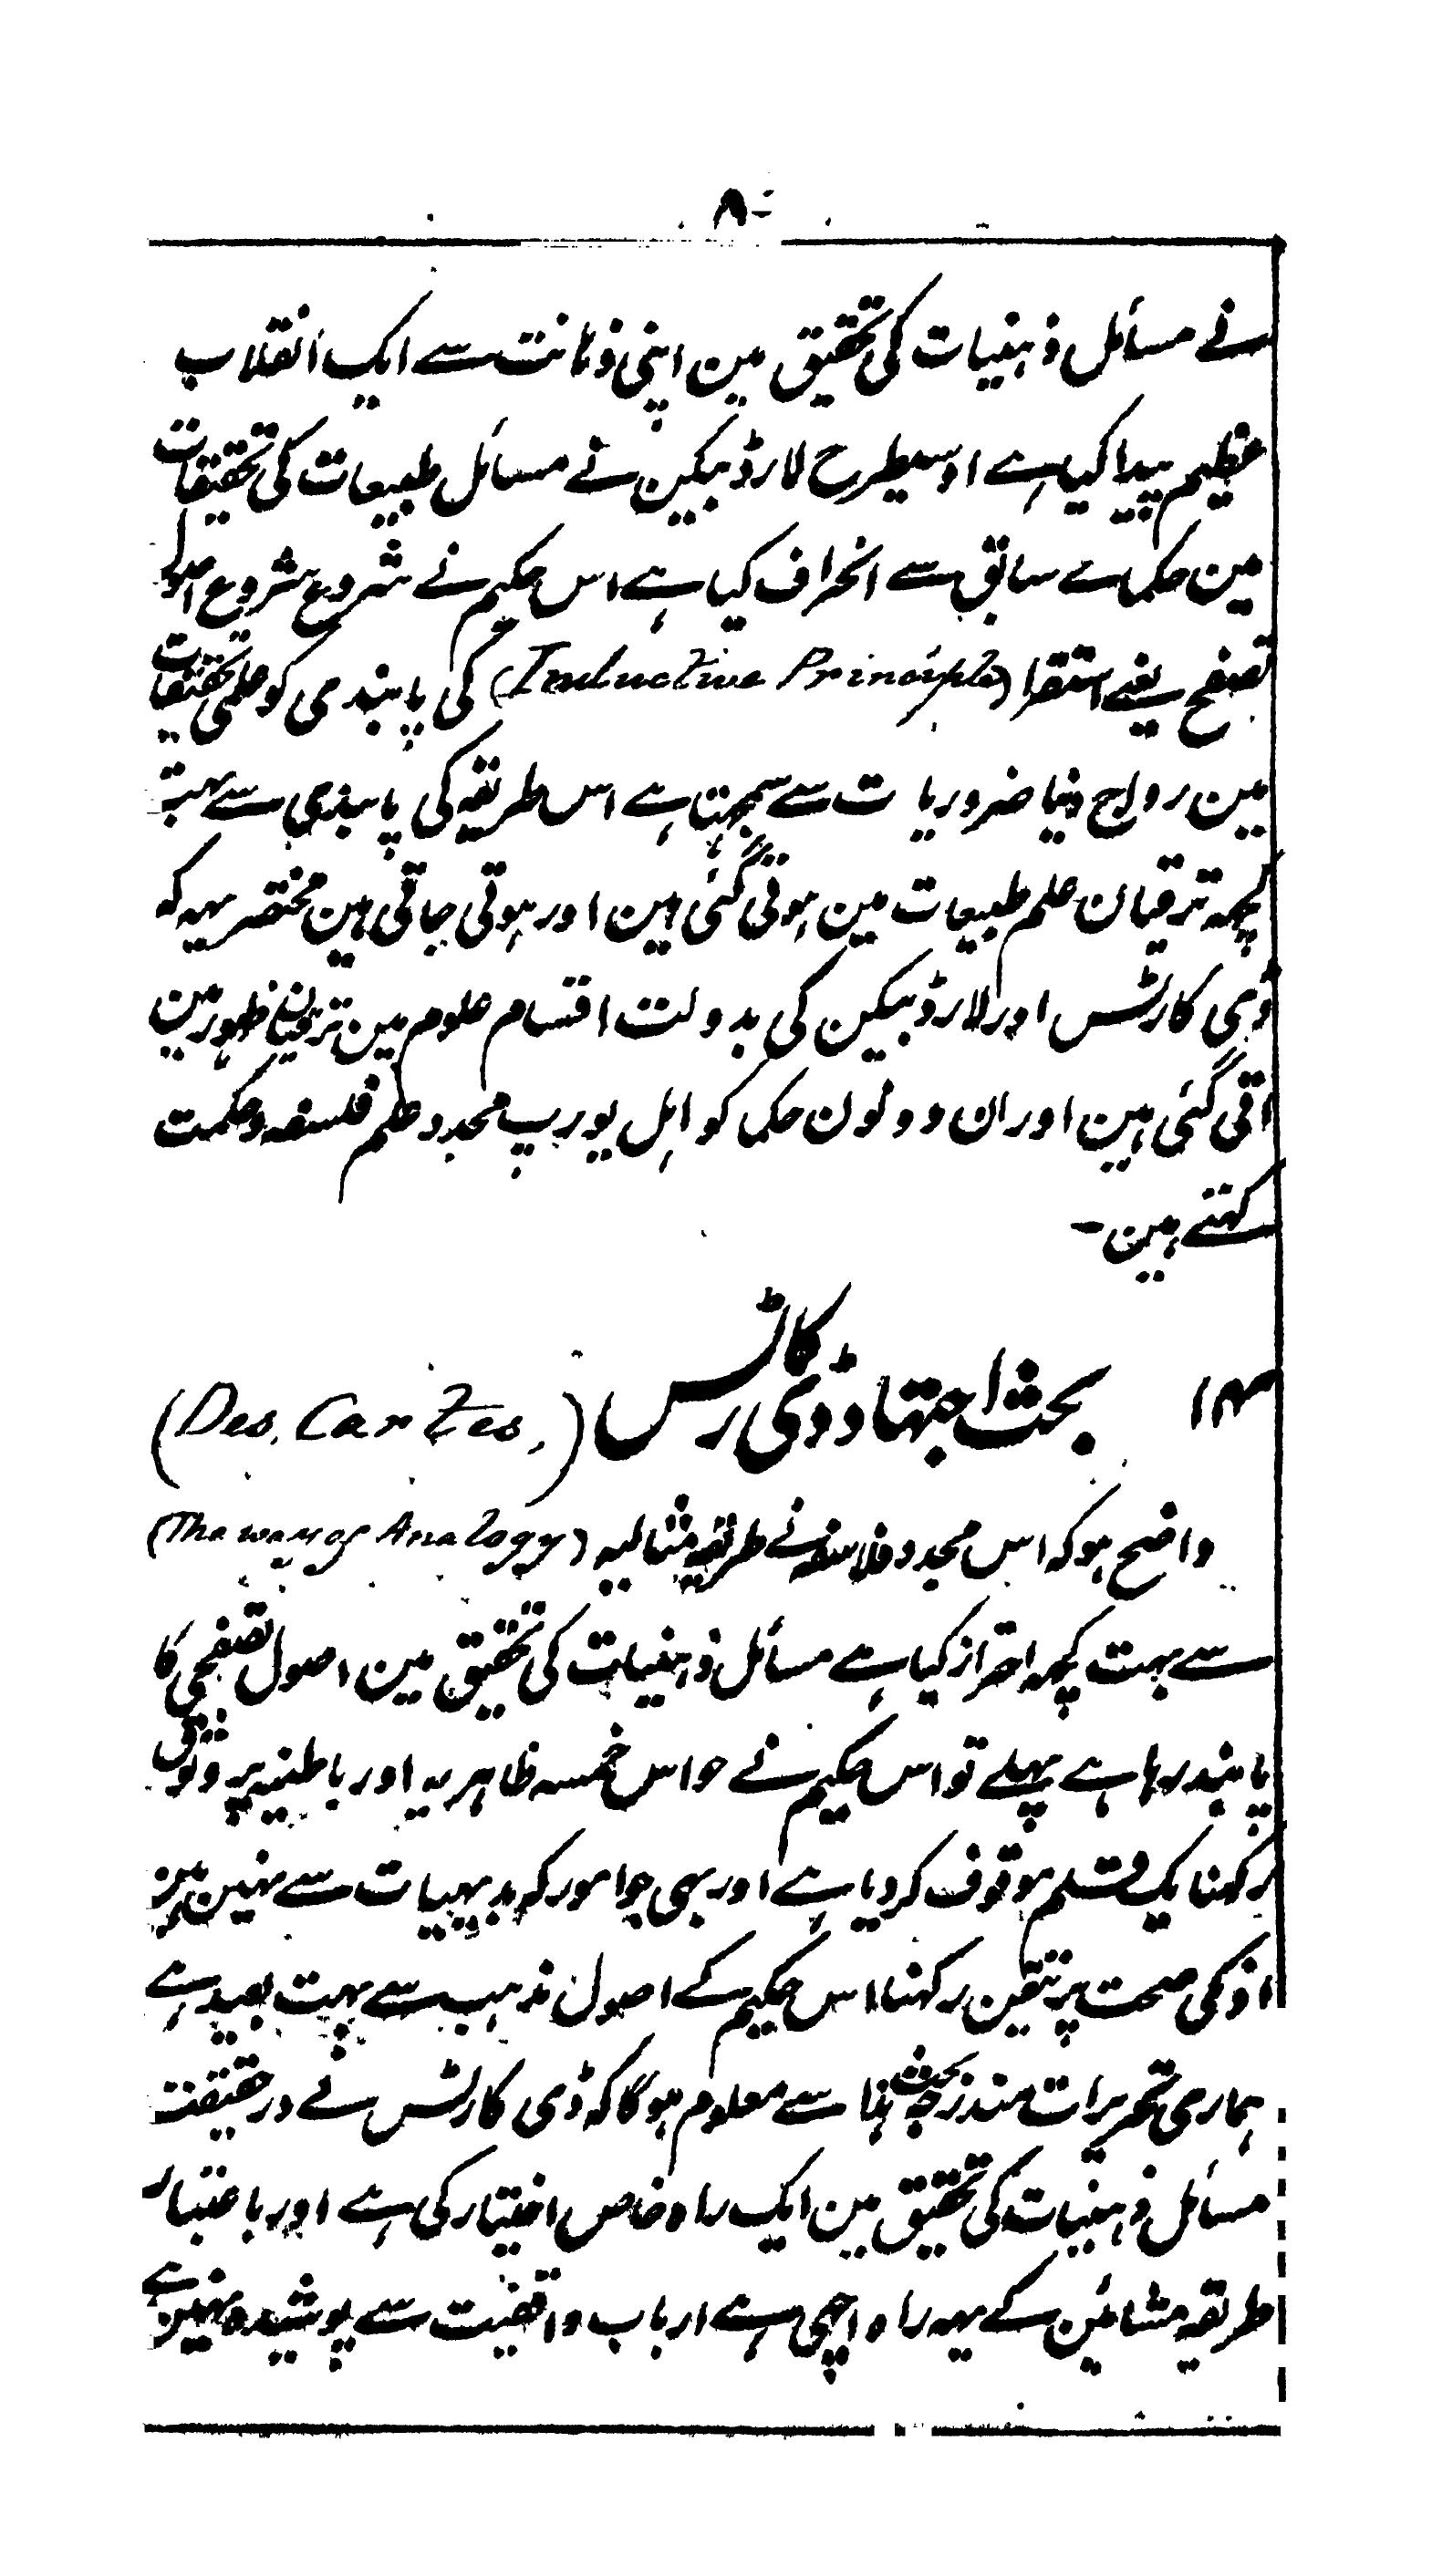 ۸۰
نے مسائل ذہنیات کی تحقیق مین اپنی ذہانت سے ایک انقلاب
عظیم پیدا کیا ہے اوسیطرح لارڈ بیکن نے مسائل طبیعات کی تحقیقات
مین حکماے سابق سے انحراف کیا ہے اس حکیم نے شروع شروع اصول
تصفح یعنے استقرا (Inductive Principle) کی پابندی کو علمی تحقیقات
مین رواج دنیا ضروریات سے سمجہتا ہے اس طریقہ کی پابندی سے بہت
کچہہ ترقیان علم طبیعات مین ہوتی گئی ہین اور ہوتی جاتی ہین مختصر یہہ کہ
ڈی کارٹس اور لارڈ بیکن کی بدولت اقسام علوم مین ترقیان ظہور مین
آتی گئی ہین اور ان دونون حکما کو اہل یورپ مجدد علم فلسفہ و حکمت
کہتے ہین۔
بحث اجتہاد ڈی کارٹس (Des. Cartes.)
واضح ہو کہ اس مجدد فلاسفہ نے طریقہ مثالیہ (The way of Analogy)
سے بہت کچہہ احتراز کیا ہے مسائل ذہنیات کی تحقیق مین اصول تصفحی کا
پابند رہا ہے پہلے تو اس حکیم نے حواس خمسہ ظاہریہ اور باطنیہ پر وثوق
رکہنا یک قلم موقوف کر دیا ہے اور بہی جو امور کہ بدیہیات سے نہین ہین
اونکی صحت پر یقین رکہنا اس حکیم کے اصول مذہب سے بہت بعید ہے
ہماری تحریرات مندرجہ بحث ہذا سے معلوم ہو گا کہ ڈی کارٹس نے درحقیقت
مسائل ذہنیات کی تحقیق مین ایک راہ خاص اختیار کی ہے اور باعتبار
طریقہ مشائین کے یہہ راہ اچہی ہے ارباب واقفیت سے پوشیدہ نہین ہے